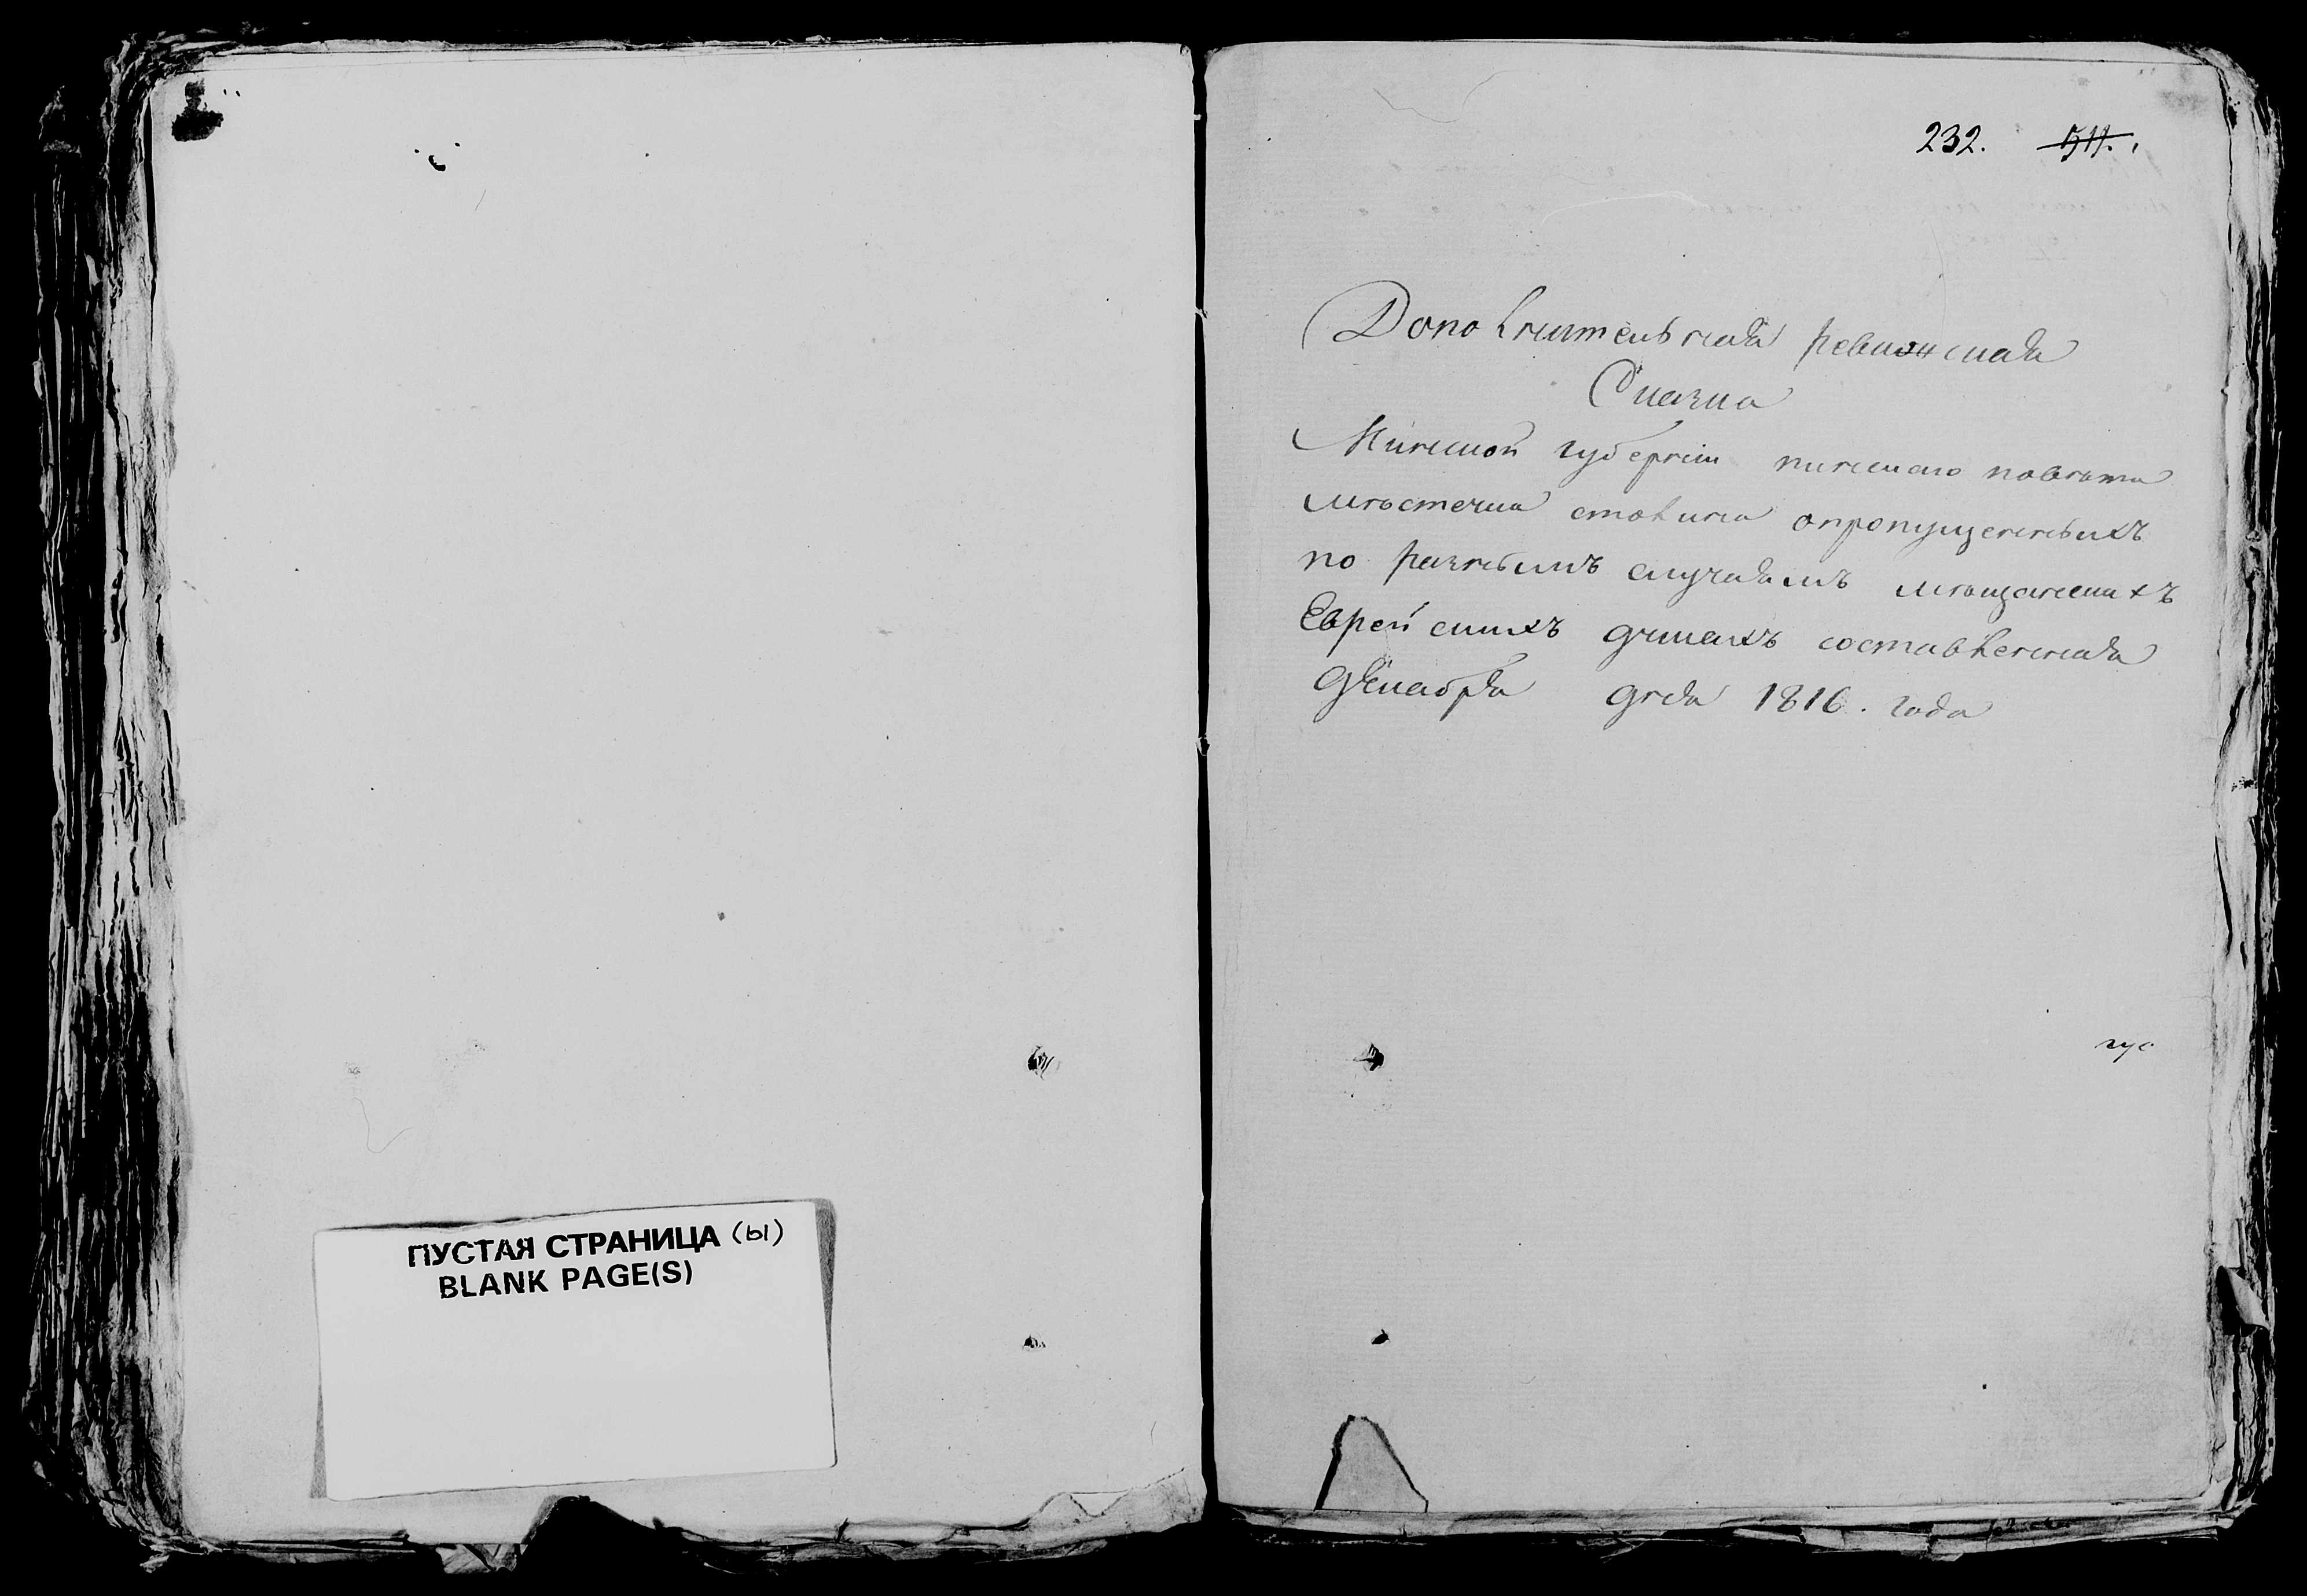 ПУСТАЯ СТРАНИЦА (ы)
BLANK PAGE(S)
232. 511.
Дополнительная ревизская
Сказка
Минской губернии пинского повѣта
мѣстечка столина опропущенныхъ
по разнымъ случаямъ мѣщанскихъ
Еврейскихъ душахъ составленная
декабря дня 1816. года